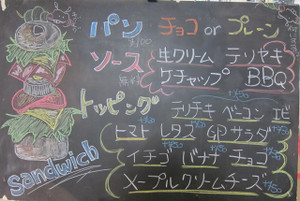 パン チョコ or プレーン
ソース 生クリーム テリヤキ
ケチャップ BBQ
トッピング テリチキ ベーコン エビ
トマト レタス GPサラダ
イチゴ バナナ チョコ
メープルクリームチーズ
Sandwich